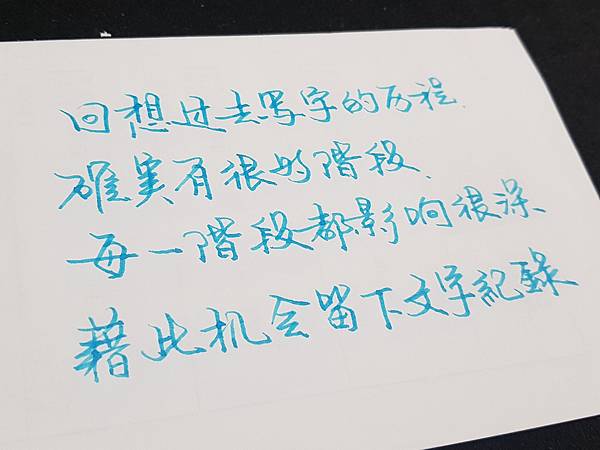 回想过去写字的历程.
確实有很多階段.
每一階段都影响很深、
藉此机会留下文字紀錄